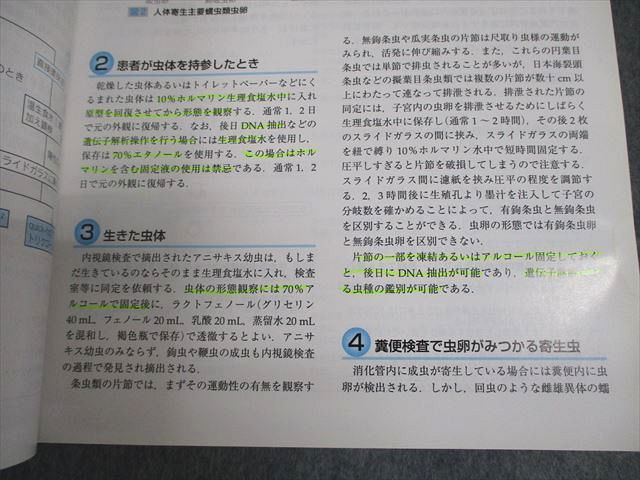 図2 人体寄生主要蠕虫類虫卵
2 患者が虫体を持参したとき
乾燥した虫体あるいはトイレットペーパーなどにく
るまれた虫体は10％ホルマリン生理食塩水中に入れ
原型を回復させてから形態を観察する．通常1，2日
で元の外観に復帰する．なお，後日DNA抽出などの
遺伝子解析操作を行う場合には生理食塩水を使用し，
保存は70％エタノールを使用する．この場合はホル
マリンを含む固定液の使用は禁忌である．通常1，2
日で元の外観に復帰する．
3 生きた虫体
内視鏡検査で摘出されたアニサキス幼虫は，もしま
だ生きているのならそのまま生理食塩水に入れ，検査
室等に同定を依頼する．虫体の形態観察には70％ア
ルコールで固定後に，ラクトフェノール（グリセリン
40 mL，フェノール20 mL，乳酸20 mL，蒸留水20 mL
を混和し，褐色瓶で保存）で透徹するとよい．アニサ
キス幼虫のみならず，鉤虫や鞭虫の成虫も内視鏡検査
の過程で発見され摘出される．
条虫類の片節では，まずその運動性の有無を観察す
る．無鉤条虫や瓜実条虫の片節は尺取り虫様の運動が
みられ，活発に伸び縮みする．また，これらの円葉目
条虫では単節で排出されることが多いが，日本海裂頭
条虫などの擬葉目条虫類では複数の片節が数十cm以
上にわたって連なって排泄される．排泄された片節の
同定には，子宮内の虫卵を排泄させるためにしばらく
生理食塩水中に保存し（通常1～2時間），その後2枚
のスライドガラスの間に挟み，スライドガラスの両端
を紐で縛り10％ホルマリン水中で短時間固定する．
圧平しすぎると片節を破損してしまうので注意する．
スライドガラス間に濾紙を挟み圧平の程度を調節す
る．2，3時間後に生殖孔より墨汁を注入して子宮の
分岐数を確かめることによって，有鉤条虫と無鉤条虫
を区別することができる．虫卵の形態では有鉤条虫卵
と無鉤条虫卵を区別できない．
片節の一部を凍結あるいはアルコール固定しておく
と，後日にDNA抽出が可能であり，遺伝子解析によ
る虫種の鑑別が可能である．
4 糞便検査で虫卵がみつかる寄生虫
消化管内に成虫が寄生している場合には糞便内に虫
卵が検出される．しかし，回虫のような雌雄異体の蠕